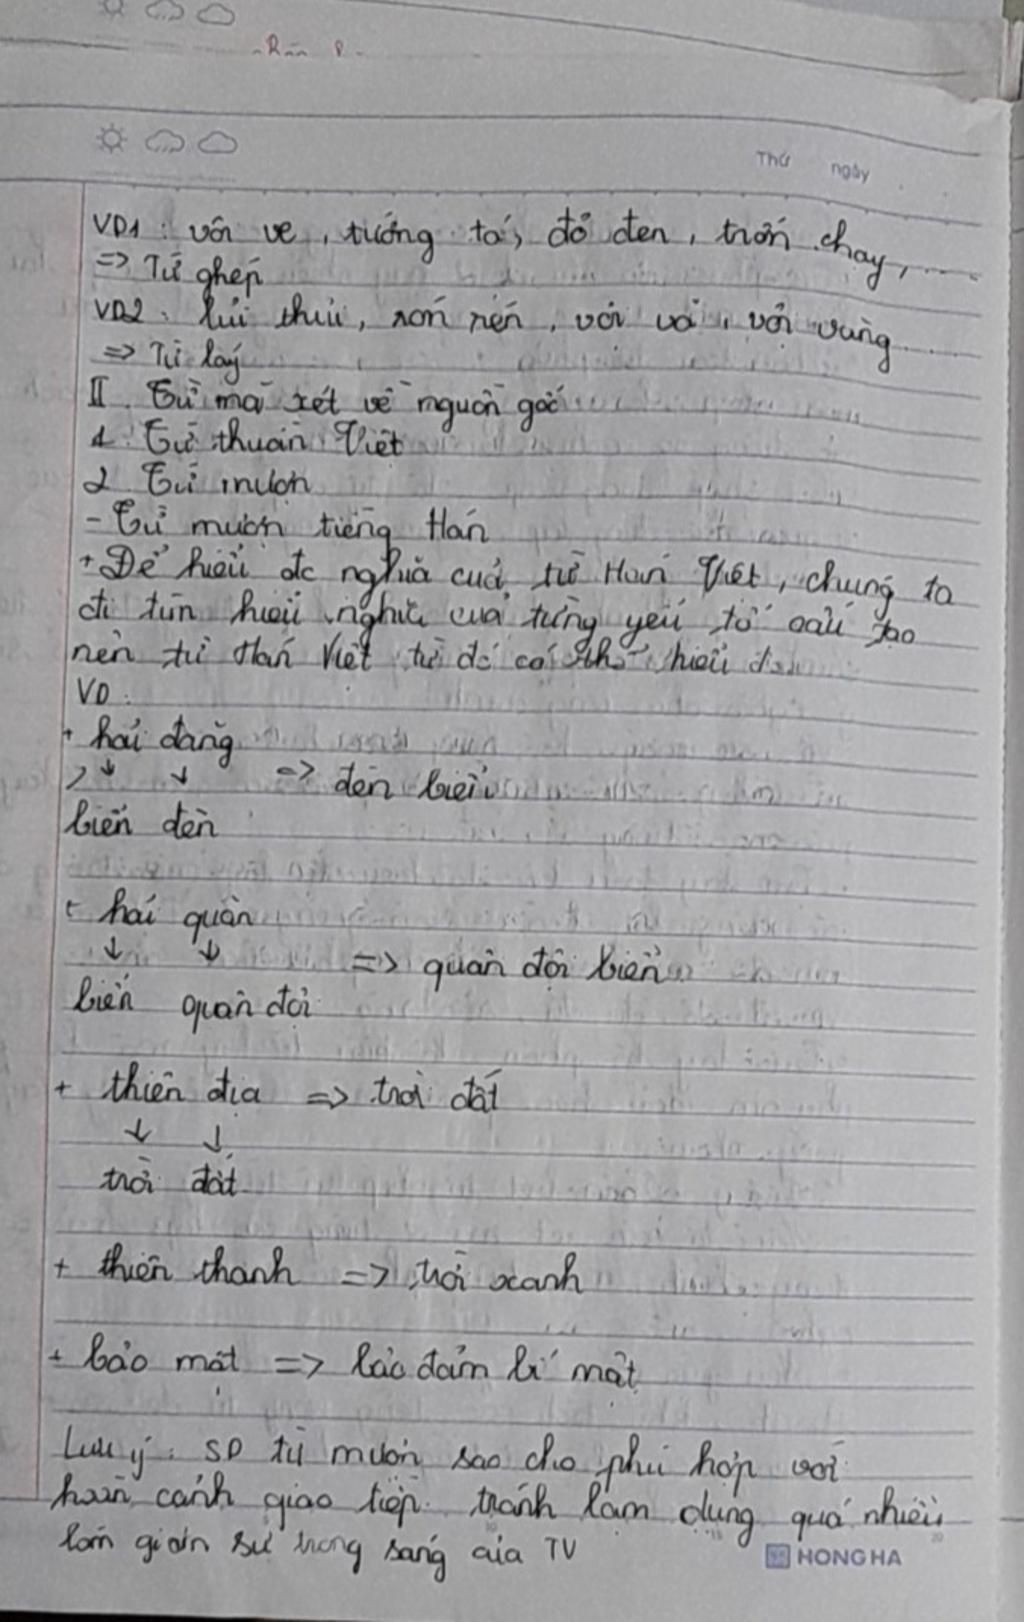 Thứ ngày
VD1: vốn ve, tướng tá, đỏ đen, trốn chạy, ......
=> Từ ghép
VD2: lủi thủi, non nén, vời vợi, vội vàng ......
=> Từ láy
II. Từ mới xét về nguồn gốc
1. Từ thuần Việt
2. Từ mượn
- Từ mượn tiếng Hán
+ Để hiểu đc nghĩa của từ Hán Việt, chúng ta
đi tìm hiểu nghĩa của từng yếu tố cấu tạo
nên từ Hán Việt từ đó có thể hiểu
VD:
+ hải đăng
↓ ↓ => đèn biển
biển đèn
+ hải quân
↓ ↓ => quân đội biển
biển quân đội
+ thiên địa => trời đất
↓ ↓
trời đất
+ thiên thanh => trời xanh
+ bảo mật => bảo đảm bí mật
Lưu ý: SD từ mượn sao cho phù hợp với
hoàn cảnh giao tiếp. tránh lạm dụng quá nhiều
làm giản sự trong sáng của TV
HONG HA